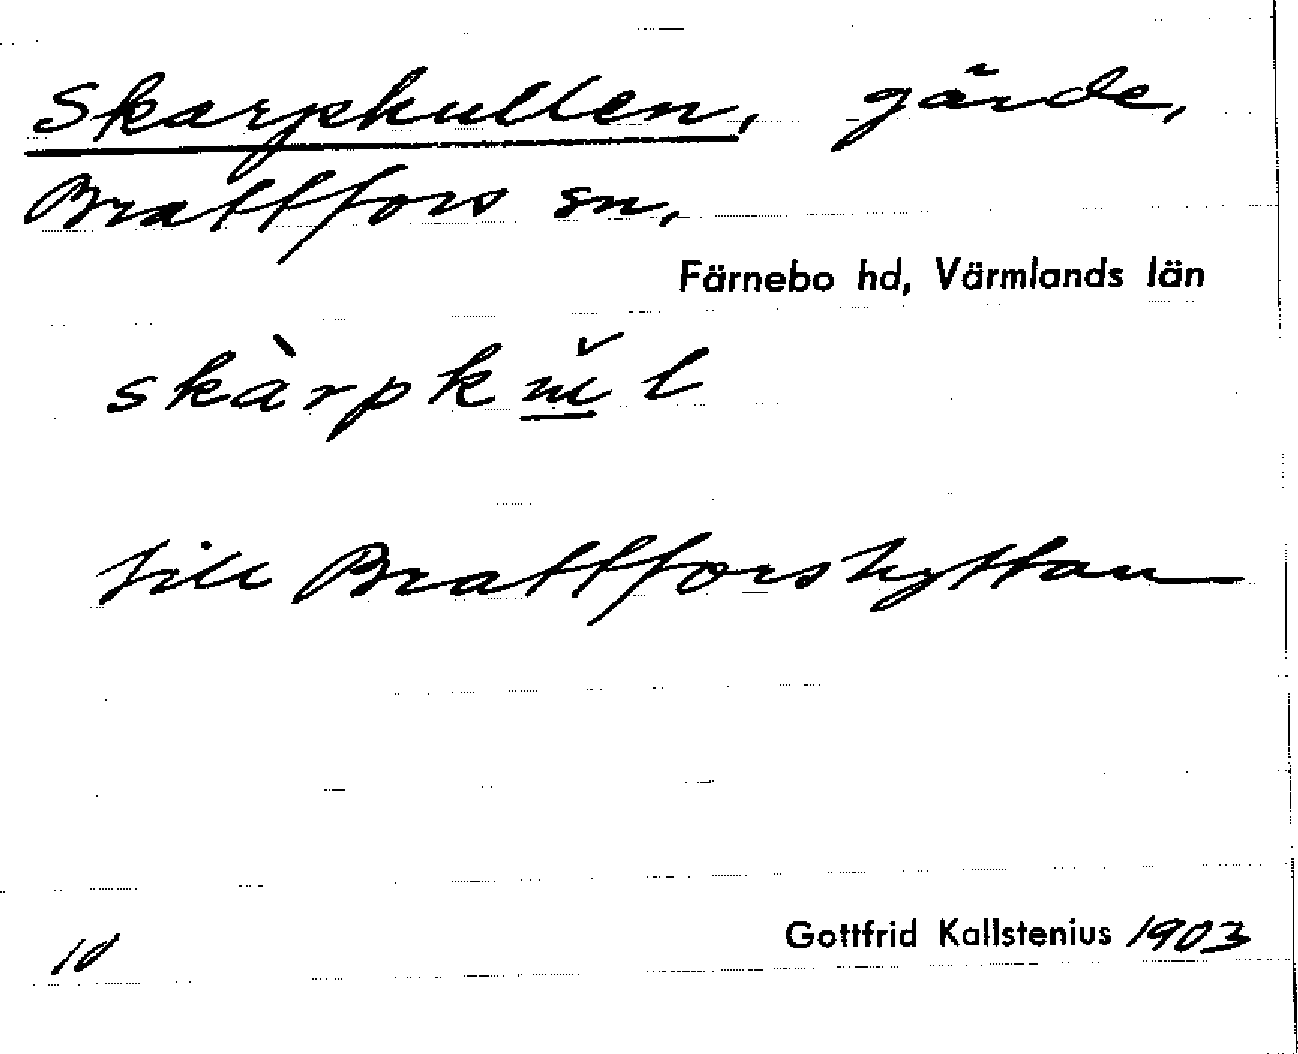 Skarpkullen, gärde,
Brattfors sn.
Färnebo hd, Värmlands län
skàrpkŭ̲l
till Brattforshyttan
10
Gottfrid Kallstenius 1903